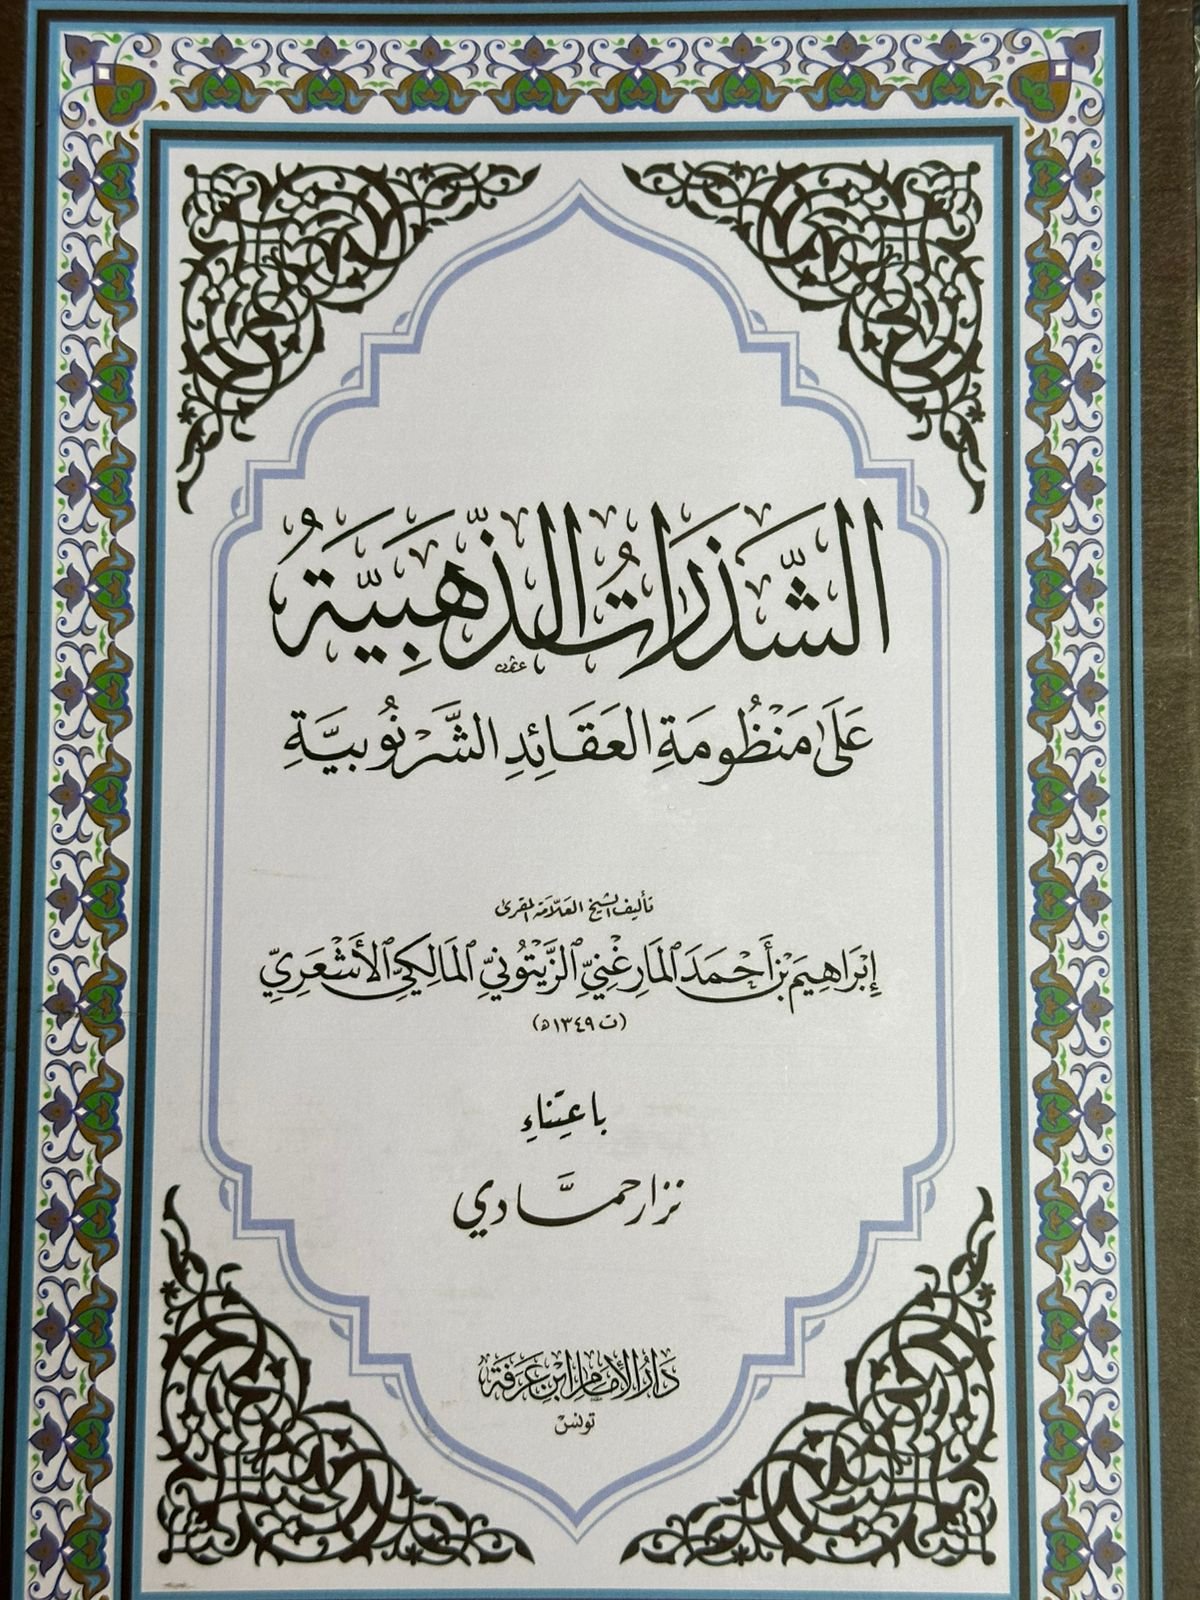 الشَّذَرَاتُ الذَّهَبِيَّةُ
عَلَى مَنْظُومَةِ العَقَائِدِ الشَّرْنُوبِيَّةِ
تأليف الشيخ العلّامة المقرئ
إِبْرَاهِيمَ بْنِ أَحْمَدَ المَارِغْنِيِّ الزَّيْتُونِيِّ المَالِكِيِّ الأَشْعَرِيِّ
(ت ١٣٤٩ه)
باعتِناءِ
نزار حمَّادي
دَارُ الإِمَامِ ابْنِ عَرَفَة
تونس